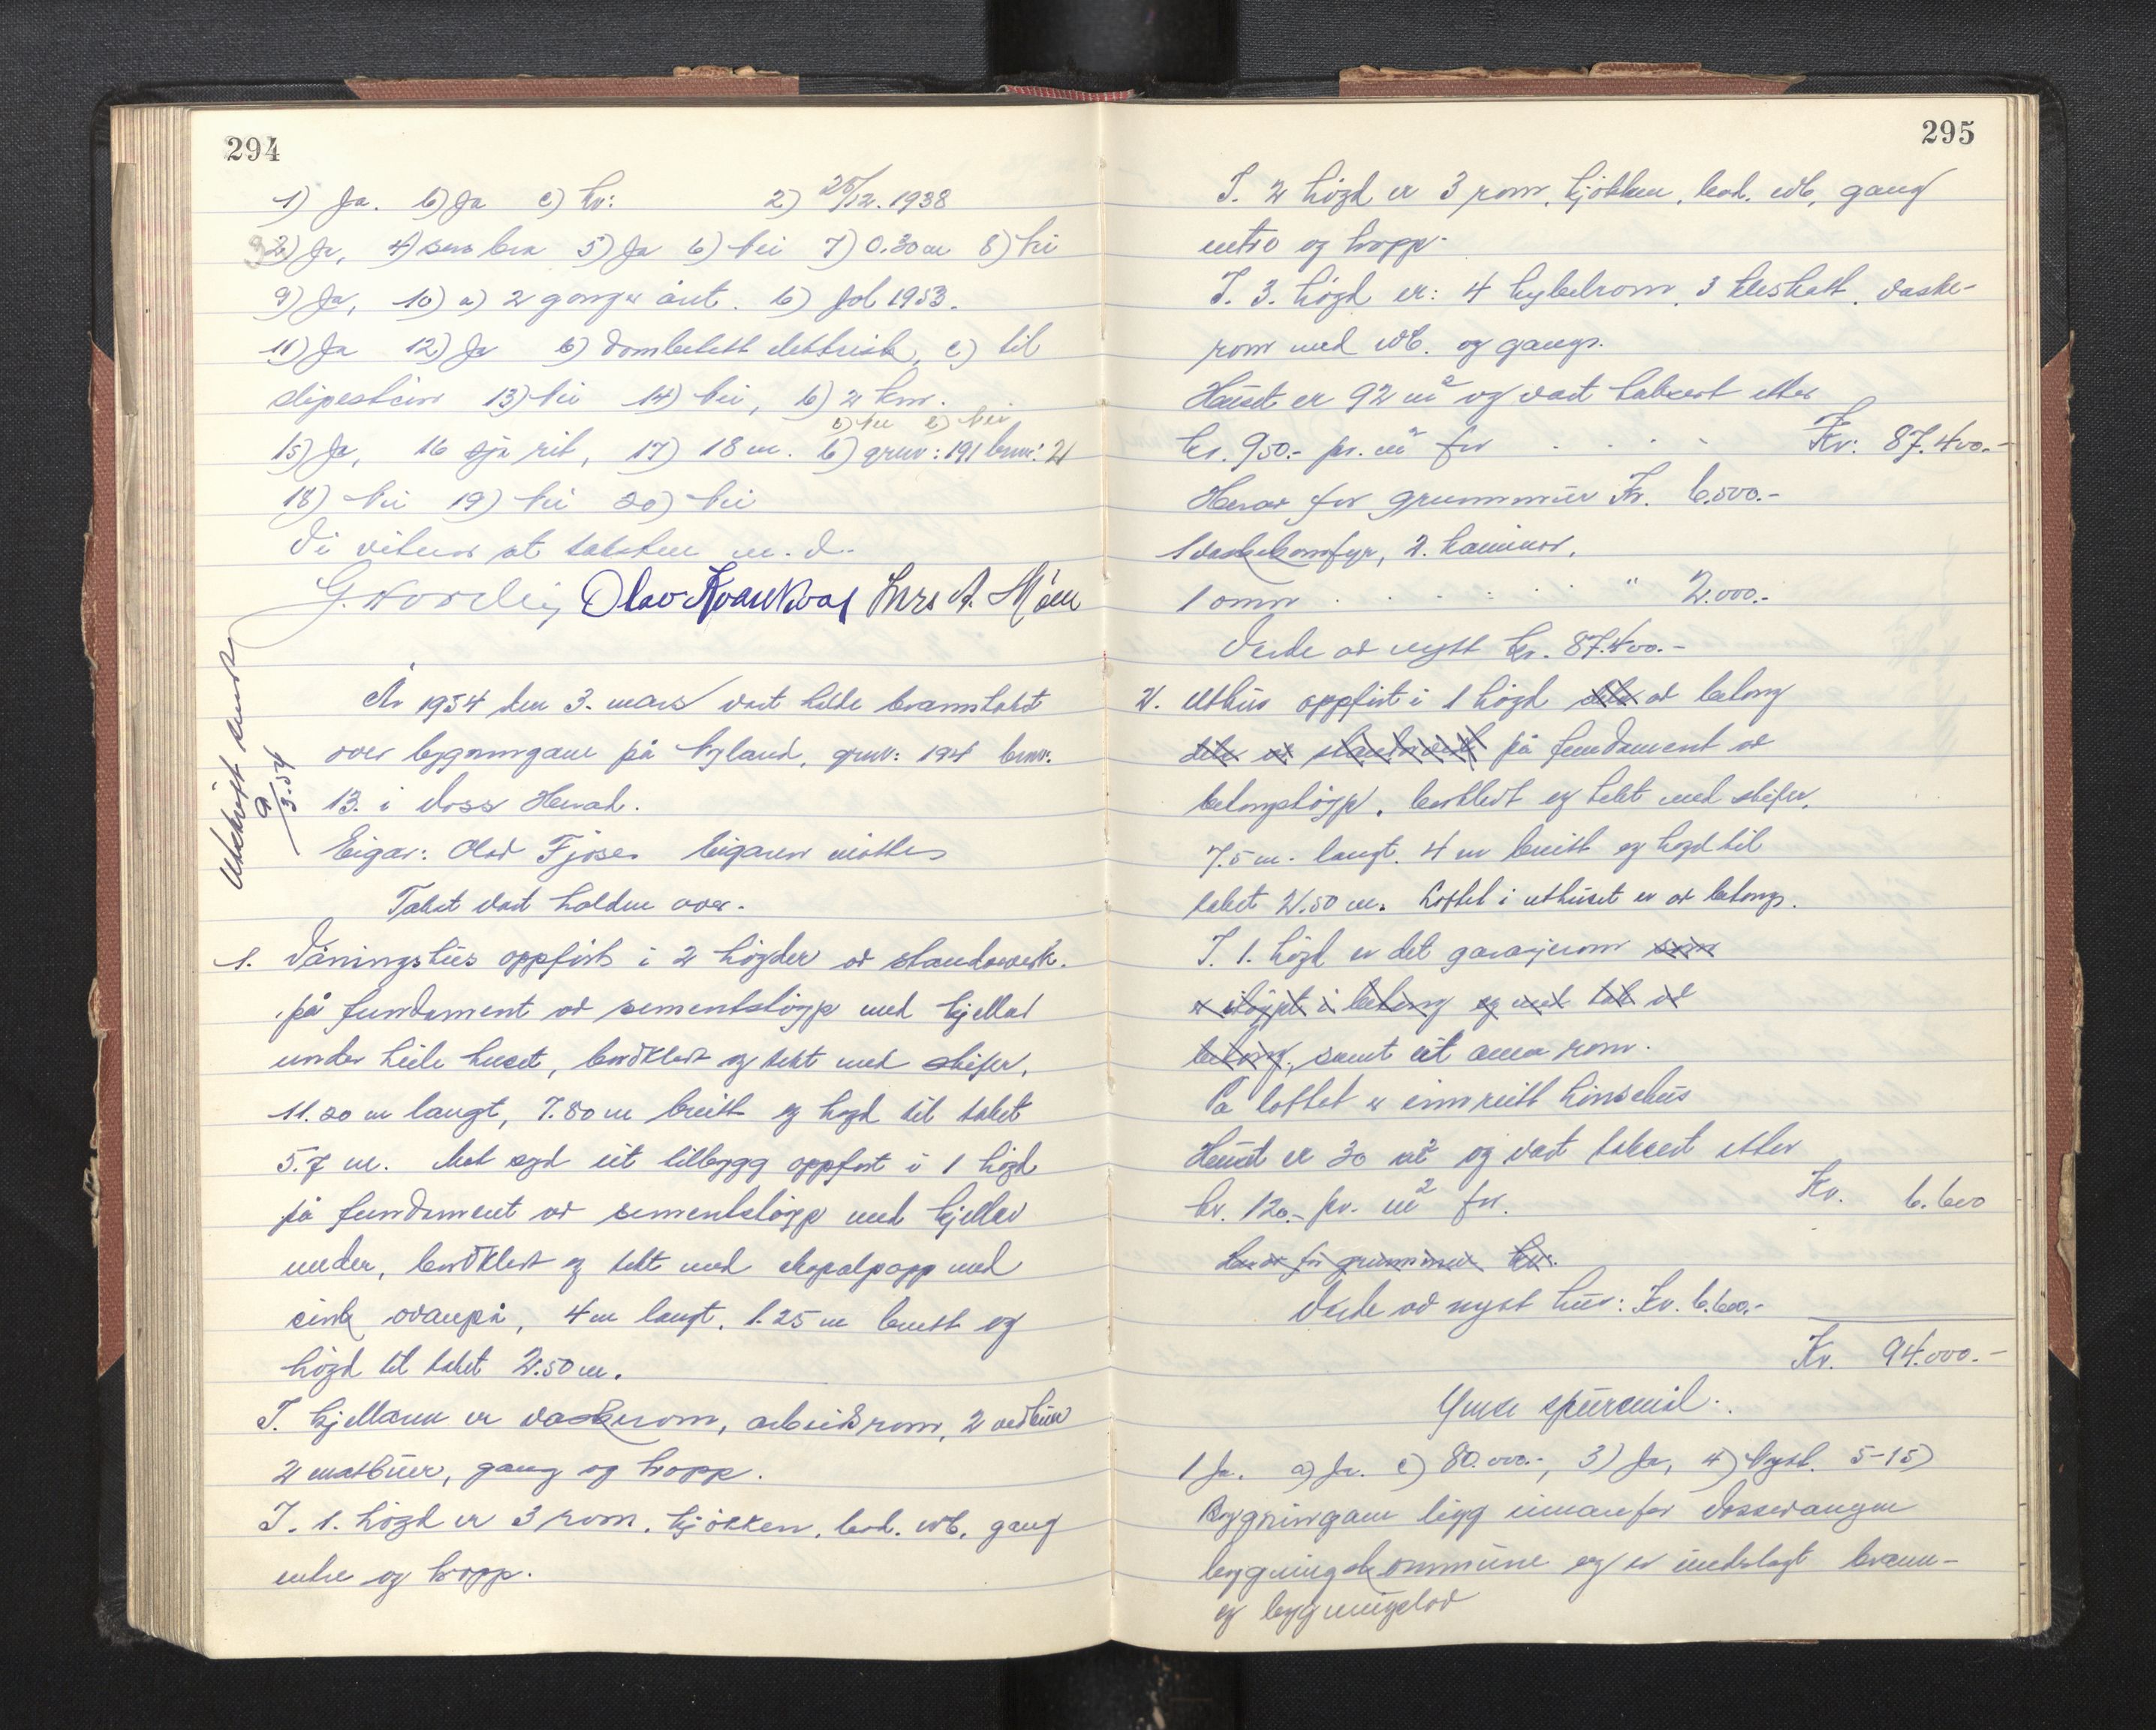 294
1) Ja. b) Ja c) kr: 2) 28/12. 1938
3) Ja, 4) sers bra 5) Ja 6) Nei 7) 0.30 m 8) Nei
9) Ja, 10) a) 2 gonger året. b) Jol 1953.
11) Ja 12) Ja b) Vombelett elektrisk, c) til
slipestein 13) Nei 14) Nei, b) 2 km.
b) Nei c) Nei
15) Ja, 16 sjå rit, 17) 18 m. b) gnr: 191 bnr: 21
18) Nei 19) Nei 20) Nei
Vi vitnar at taksten m. v.
Olav Kvarekval Lars A. Møen
Utskrift sendt
9/3.54
År 1954 den 3. mars vart halde branntakst
over bygningane på Nyland, gnr: 194 bnr:
13. i Voss Herad.
Eigar: Olav Fjøse. Eigaren møtte
Takst vart halden over.
1. Våningshus oppført i 2 høgder av standverk.
på fundament av sementstøyp med kjellar
under heile huset, bordkledt og tekt med skifer,
11.20 m langt, 7.80 m breitt og høgd til taket
5.7 m. Mot syd eit tilbygg oppført i 1 høgd
på fundament av sementstøyp med kjellar
under, bordkledt og tekt med papp med
sink ovanpå, 4 m langt. 1.25 m breitt og
høgd til taket 2.50 m.
I. kjellaren er vaskerom, arbeidsrom, 2 vedbuer
2 matbuer, gang og tropp.
I. 1. høgd er 3 rom, kjøkken, bad. wc, gang
entre og tropp.
295
I. 2 høgd er 3 rom, kjøkken, bad. wc, gang
entre og tropp.
I. 3. høgd er: 4 hybelrom, 3 kleskott, vaske-
rom med wc. og gang.
Huset er 92 m² og vart taksert etter
kr. 950.- pr. m² for . . . . Kr: 87.400.-
Herav for grunnmur Kr. 6.500.-
1 vaskekomfyr, 2. kaminer,
1 omn . . . . . " 2.000.-
Verde av nytt kr. 87.400.-
2. Uthus oppført i 1 høgd dels av betong
dels av standverk på fundament av
betongstøyp, bordkledt og tekt med skifer,
7.5 m. langt. 4 m breitt og høgd til
taket 2.50 m. Loftet i uthuset er av betong.
I. 1. høgd er det garasjerom som
er støypt i betong og med tak av
betong, samt eit anna rom.
På loftet er innreitt hønsehus
Huset er 30 m² og vart taksert etter
kr. 120.- pr. m² for. Kr. 6.600
Herav for grunnmur kr.
Verde av nytt hus: Kr. 6.600.-
Kr. 94.000.-
Ymse spursmål.
1 Ja. a) Ja. c) 80.000.-, 3) Ja, 4) Nytt. 5-15)
Bygningane ligg innanfor Vossevangen
bygningskommune og er underlagt brann-
og bygningslov